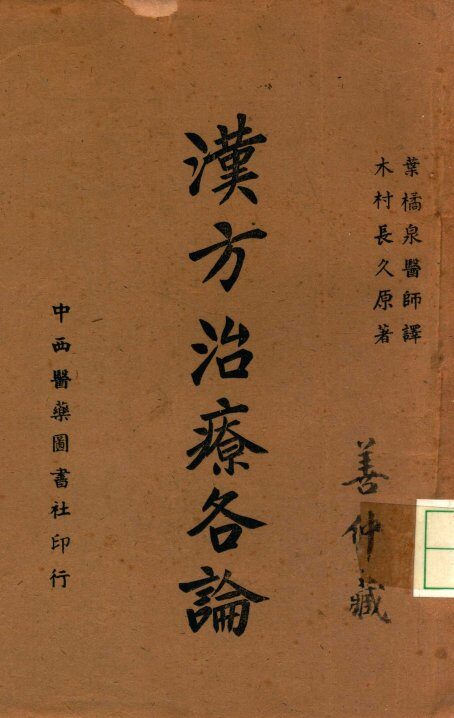 葉橘泉醫師譯
木村長久原著
善仲藏
漢方治療各論
中西醫藥圖書社印行